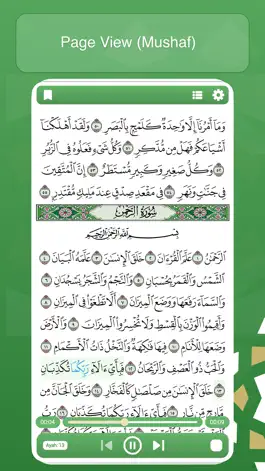 Page View (Mushaf)
وَمَآ أَمْرُنَآ إِلَّا وَٰحِدَةٌ كَلَمْحٍۭ بِٱلْبَصَرِ ٥٠ وَلَقَدْ أَهْلَكْنَآ
أَشْيَاعَكُمْ فَهَلْ مِن مُّدَّكِرٍ ٥١ وَكُلُّ شَىْءٍ فَعَلُوهُ فِى ٱلزُّبُرِ
٥٢ وَكُلُّ صَغِيرٍ وَكَبِيرٍ مُّسْتَطَرٌ ٥٣ إِنَّ ٱلْمُتَّقِينَ
فِى جَنَّٰتٍ وَنَهَرٍ ٥٤ فِى مَقْعَدِ صِدْقٍ عِندَ مَلِيكٍ مُّقْتَدِرٍۭ ٥٥
سُورَةُ الرَّحْمَٰن
بِسْمِ ٱللَّهِ ٱلرَّحْمَٰنِ ٱلرَّحِيمِ
ٱلرَّحْمَٰنُ ١ عَلَّمَ ٱلْقُرْءَانَ ٢ خَلَقَ ٱلْإِنسَٰنَ ٣ عَلَّمَهُ ٱلْبَيَانَ ٤
ٱلشَّمْسُ وَٱلْقَمَرُ بِحُسْبَانٍ ٥ وَٱلنَّجْمُ وَٱلشَّجَرُ يَسْجُدَانِ ٦
وَٱلسَّمَآءَ رَفَعَهَا وَوَضَعَ ٱلْمِيزَانَ ٧ أَلَّا تَطْغَوْا۟ فِى ٱلْمِيزَانِ ٨
وَأَقِيمُوا۟ ٱلْوَزْنَ بِٱلْقِسْطِ وَلَا تُخْسِرُوا۟ ٱلْمِيزَانَ ٩ وَٱلْأَرْضَ
وَضَعَهَا لِلْأَنَامِ ١٠ فِيهَا فَٰكِهَةٌ وَٱلنَّخْلُ ذَاتُ ٱلْأَكْمَامِ
١١ وَٱلْحَبُّ ذُو ٱلْعَصْفِ وَٱلرَّيْحَانُ ١٢ فَبِأَىِّ ءَالَآءِ رَبِّكُمَا تُكَذِّبَانِ
١٣ خَلَقَ ٱلْإِنسَٰنَ مِن صَلْصَٰلٍ كَٱلْفَخَّارِ ١٤ وَخَلَقَ ٱلْجَآنَّ مِن
مَّارِجٍ مِّن نَّارٍ ١٥ فَبِأَىِّ ءَالَآءِ رَبِّكُمَا تُكَذِّبَانِ ١٦
00:04
00:09
Ayah: 13